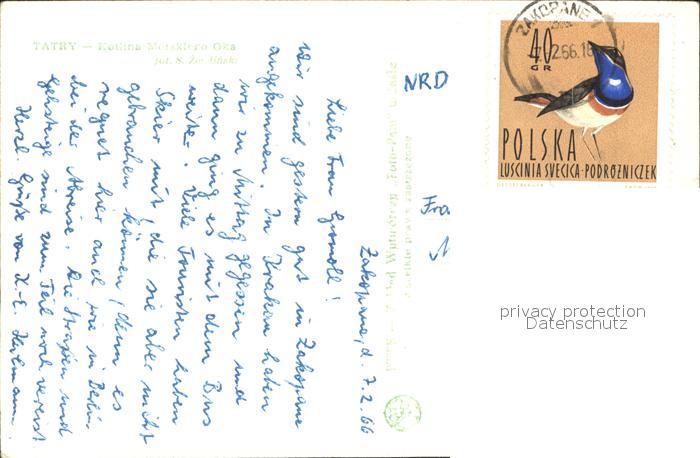 TATRY — Kotlina Morskiego Oka
fot. S. Zwoliński
Zakopane, d. 7.2.66
Liebe Frau Gromoll!
Wir sind gestern gut in Zakopane
angekommen. In Krakau haben
wir zu Mittag gegessen und
dann ging es mit dem Bus
weiter. Viele Touristen haben
Skier mit, die sie aber nicht
gebrauchen können, denn es
regnet hier auch wie in Berlin
bei der Abreise. Die Straßen und
Gehsteige sind zum Teil noch vereist.
Herzl. Grüße von K.-E.
NRD
Fra
ZAKOPANE 1
2.66.18
40
GR
POLSKA
LUSCINIA SVECICA-PODRÓŻNICZEK
privacy protection
Datenschutz